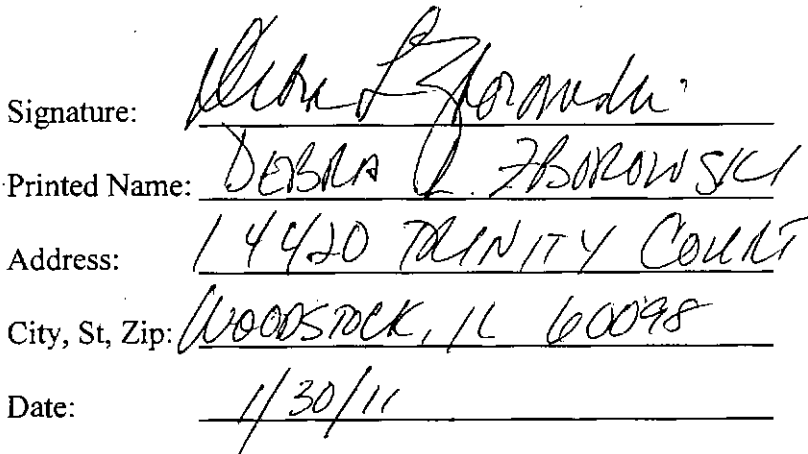 Signature: Debra L Zborowski
Printed Name: DEBRA L. ZBOROWSKI
Address: 14420 TRINITY COURT
City, St, Zip: WOODSTOCK, IL 60098
Date: 1/30/11